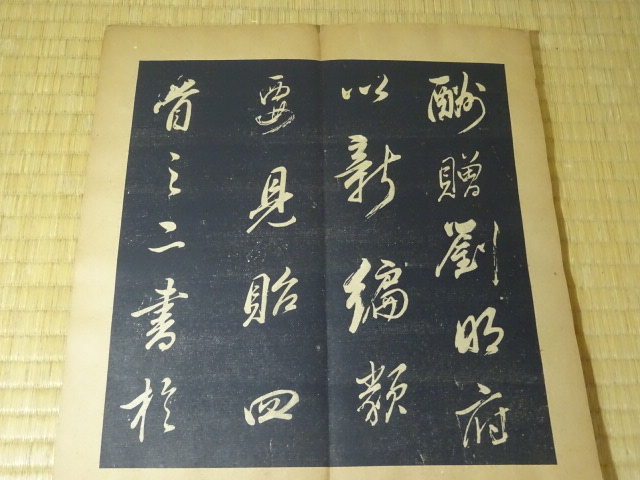 酬贈劉明府
以新編類
要見貽四
首之二書於